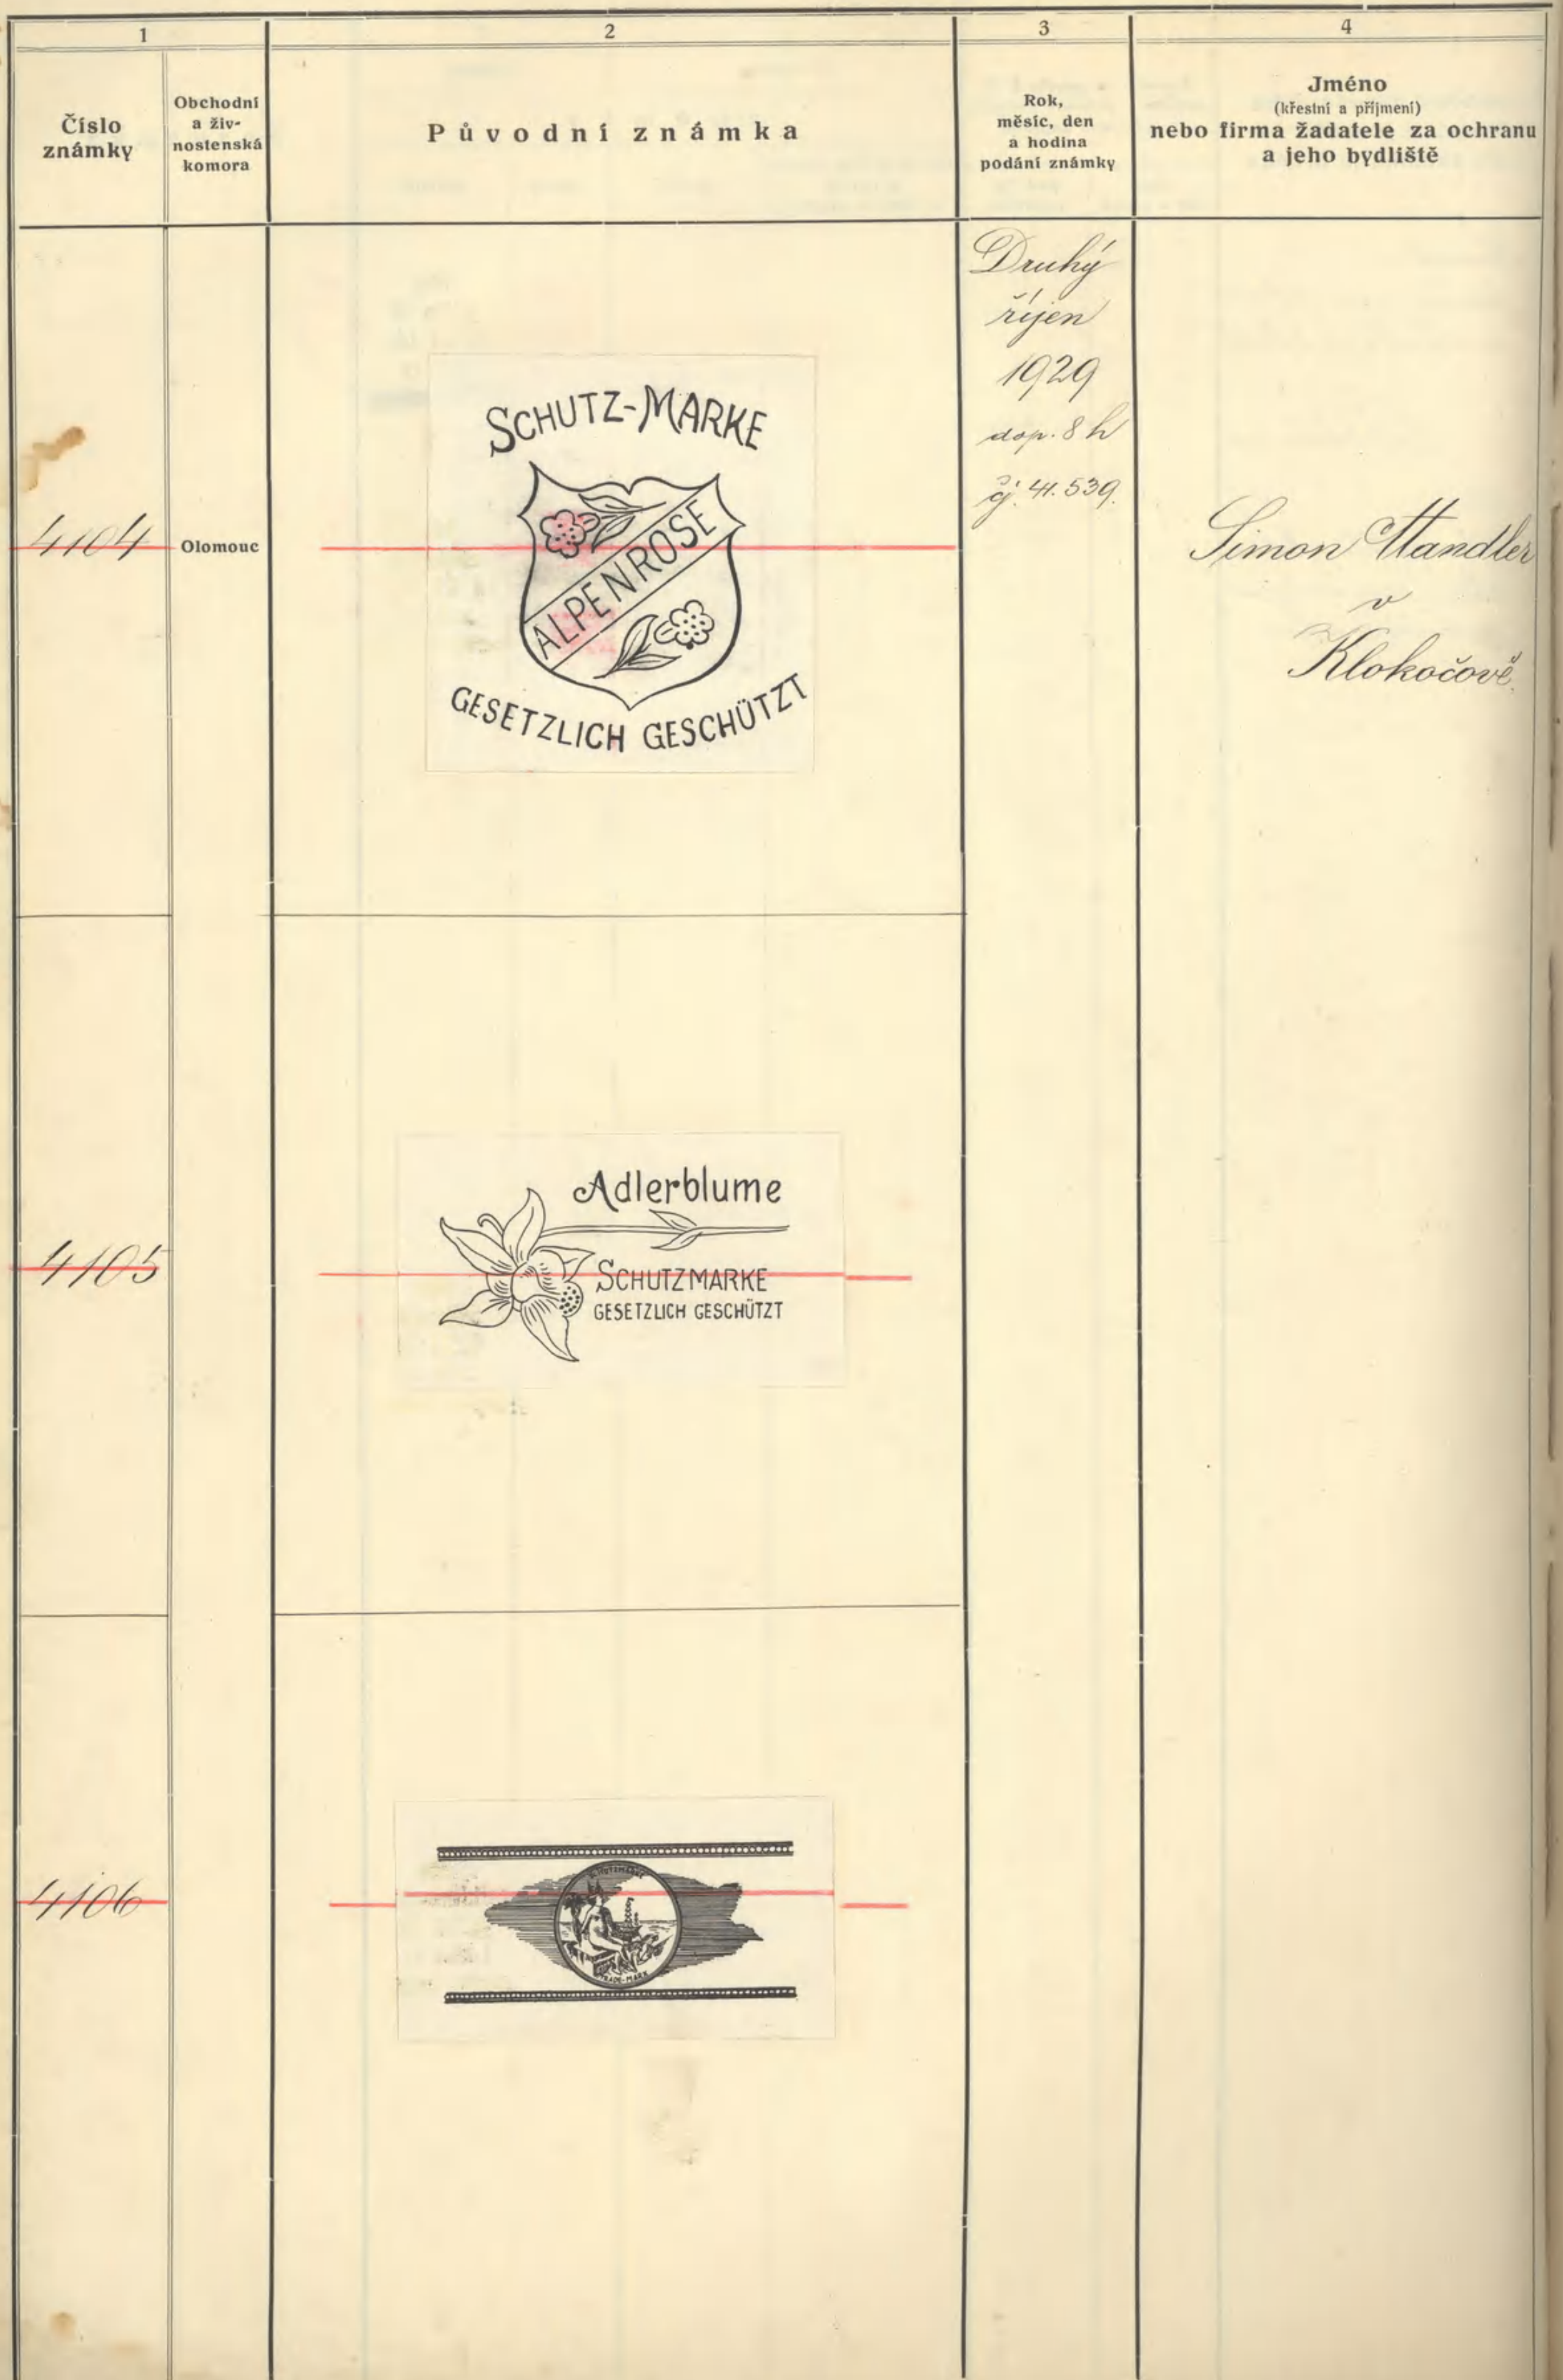 1
2
3
4
Číslo
známky
Obchodní
a živ-
nostenská
komora
Původní známka
Rok,
měsíc, den
a hodina
podání známky
Jméno
(křestní a příjmení)
nebo firma žadatele za ochranu
a jeho bydliště
4104
Olomouc
SCHUTZ-MARKE
ALPENROSE
GESETZLICH GESCHÜTZT
Druhý
říjen
1929
dop. 8 h
čj. 41.539.
Simon Mandler
v
Klokočově.
4105
Adlerblume
SCHUTZMARKE
GESETZLICH GESCHÜTZT
4106
SCHUTZMARKE
TRADE-MARK